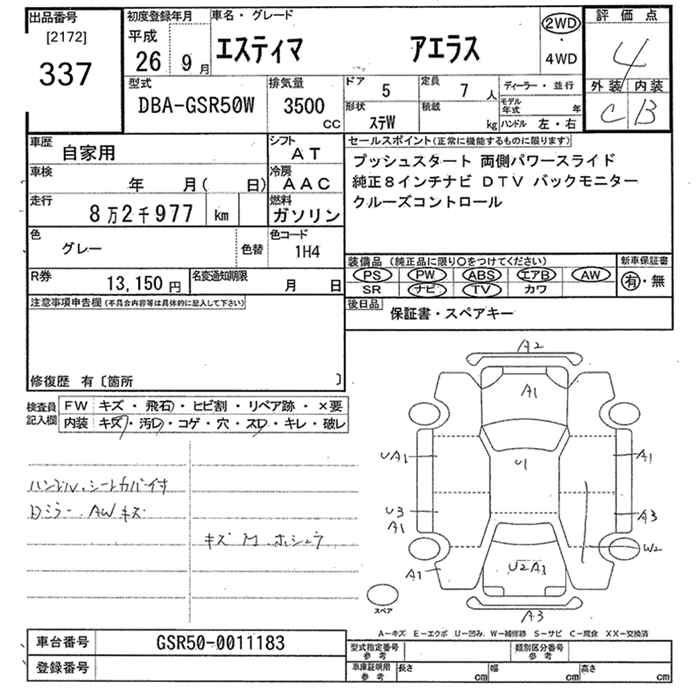 出品番号 初度登録年月 車名・グレード 評価点
[2172] 平成 2WD
337 26年 9月 エスティマ アエラス 4WD 4
型式 排気量 ドア 5 定員 7人 ディーラー・並行 外装 内装
DBA-GSR50W 3500 CC 形状 ステW 積載 kg モデル年式 年 C B
ハンドル 左・右
車歴 自家用 シフト AT セールスポイント(正常に機能するものに限ります)
車検 年 月( 日) 冷房 AAC プッシュスタート 両側パワースライド
走行 8万2千977 km 燃料 ガソリン 純正8インチナビ DTV バックモニター
色 グレー 色替 色コード 1H4 クルーズコントロール
R券 13,150円 名変通知期限 月 日 装備品(純正品に限り○をつけてください) 新車保証書
PS PW ABS エアB AW 有・無
SR ナビ TV カワ
注意事項申告欄(不具合内容等は具体的に記入して下さい) 後日品 保証書・スペアキー
修復歴 有〔箇所 〕
検査員記入欄 FW キズ・飛石・ヒビ割・リペア跡・×要
内装 キズ・汚レ・コゲ・穴・スレ・キレ・破レ
A2
A1
UA1 U1 A1
ハンドル、シートカバー付
Dミラー、AWキズ U3 A1 A3
キズ W2
A1 U2A3 A1
スペア A3
A-キズ E-エクボ U-凹み W-補修跡 S-サビ C-腐食 XX-交換済
車台番号 GSR50-0011183 型式指定番号 参考 類別区分番号 参考
登録番号 車庫証明用 参考 長さ cm 幅 cm 高さ cm